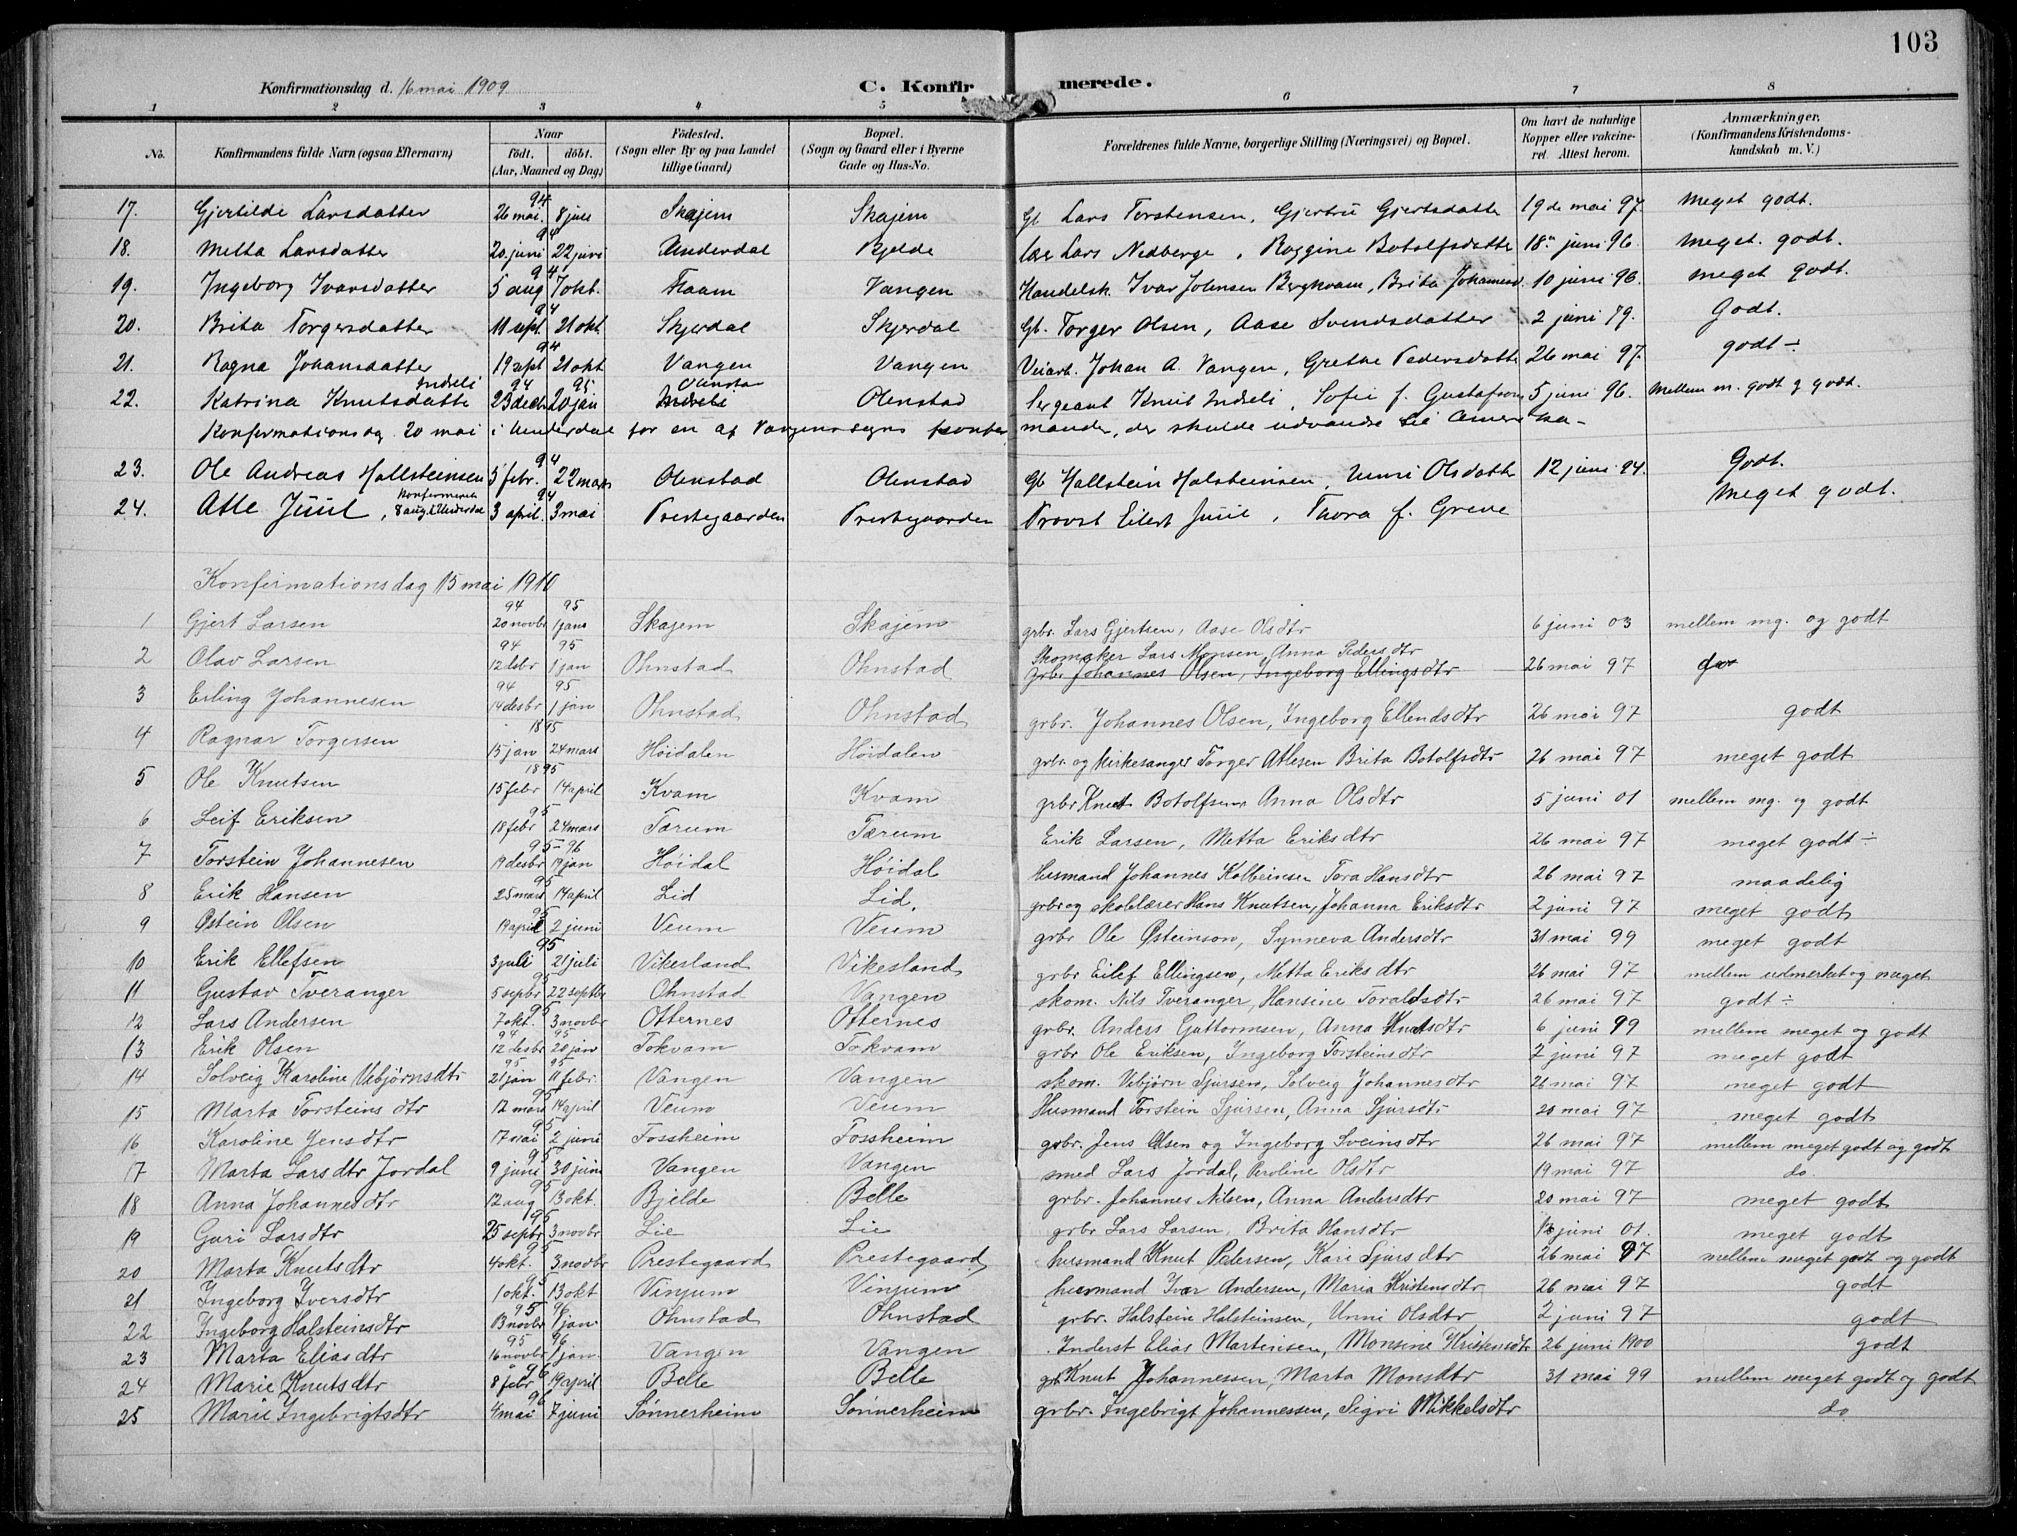 103
Konfirmationsdag d. 16 mai 1909
C. Konfirmerede.
1 2 3 4 5 6 7 8
No. Konfirmandens fulde Navn (ogsaa Efternavn) Naar Födt. döbt. (Aar, Maaned og Dag) Födested. (Sogn eller By og paa Landet tillige Gaard) Bopæl. (Sogn og Gaard eller i Byerne Gade og Hus-No. Forældrenes fulde Navne, borgerlige Stilling (Næringsvei) og Bopæl. Om havt de naturlige Kopper eller vakcineret. Attest herom. Anmærkninger. (Konfirmandens Kristendomskundskab m. V.)
17. Gjertilde Larsdatter 94 26 mai. 8 juli Skajem Skajem Gb. Lars Torstensen, Gjertrü Gjertsdatte 19de mai 97. Meget godt.
18. Metta Larsdatter 94 20 juni 22 juni Underdal Bjelde Lars Nedberge, Raggine Botolfsdatter 18 juni 96. Meget. godt.
19. Ingeborg Ivarsdatter 94 5 aug 7 okt. Flaam Vangen Handelsk. Ivar Johnsen Bergkvam, Brita Johannesd. 10 juni 98. meget godt.
20. Brita Torgersdatter 94 11 sept. 21 okt Skjerdal Skjerdal Gb. Torger Olsen, Aase Svendsdatter 2 juni 79. Godt.
21. Ragna Johansdatter 94 19 sept 21 okt Vangen Vangen Veiarb. Johan A. Vangen, Grethe Pedersdatte 26 mai 97. godt ÷
22. Katrina Knutsdatte Indreli 94 95 23 decbr 20 jan Indreli Olnstad Olenstad Sergeant Knut Indreli, Sofie f. Gustafson 5 juni 96. Mellem m. godt og godt.
Konfermationsdag 20 mai i Underdal for en af Vangens sogns konfermander, der skulde udvandre til Amerika -
23. Ole Andreas Hallsteinsen 94 5 febr. 22 mars Olenstad Olenstad Gb Hallstein Halsteinsen, Unni Olsdatte 12 juni 94. Godt.
24. Atle Juul, konfermeret 8 aug. i Underdal 94 3 april. 3 mai Prestegaarden Prestegaarden Provst Eilert Juul, Thora f. Greve Meget godt.
Konfirmationsdag 15 mai 1910
1 Gjert Larsen 94 95 20 novbr 1 jana Skajem Skajem grbr. Lars Gjertsen, Aase Olsdtr 6 juni 03 mellem mg. og godt
2 Olav Larsen 94 95 12 dsbr 1 jan Ohnstad Ohnstad Skomaker Lars Monsen, Anna Pedersdtr 26 mai 97 do
Grbr. Johannes Olsen, Ingeborg Ellingsdtr
3 Erling Johannesen 94 95 14 desbr 1 jan Ohnstad Ohnstad grbr. Johannes Olsen, Ingeborg Ellendsdtr 26 mai 97 godt
4 Ragnar Torgersen 1895 15 jan 24 mars Høidalen Høidalen grbr. og Kirkesanger Torger Atlesen Brita Botolfsdtr 26 mai 97 meget godt
5 Ole Knutsen 1895 15 febr 14 april Kvam Kvam grbr Knut Botolfsen Anna Olsdtr 5 juni 01 mellem mg. og godt
6 Leif Eriksen 95 18 febr 24 mars Tærum Tærum Erik Larsen, Metta Eriksdtr 26 mai 97 meget godt ÷
7 Torstein Johannesen 95 - 96 19 desbr 19 jan Høidal Høidal Husmand Johannes Kolbeinsen Tora Hansdtr 26 mai 97 maadelig
8 Erik Hansen 95 25 mars 14 april Lid Lid. grbr og skolelærer Hans Knutsen, Johanna Eriksdtr 2 juni 97 meget godt
9 Østein Olsen 95 19 april 2 juni Veum Veum grbr Ole Østeinson, Synneva Andersdtr 31 mai 99 meget godt
10 Erik Ellefsen 95 3 juli 21 juli Vikesland Vikesland grbr Eilef Ellingsen, Metta Eriksdtr 26 mai 97 mellem udmerket og meget
11 Gustav Tveranger 95 5 sepbr 22 septbr Ohnstad Vangen skom. Nils Tveranger, Hansine Toraldsdtr 26 mai 97 godt ÷
12 Lars Andersen 95 7 okt. 3 novbr Otternes Otternes grbr. Anders Guttormsen, Anna Knutsdtr 6 juni 99 mellem meget og godt
13 Erik Olsen 94 95 12 desbr 20 jan Tokvam Tokvam grbr Ole Eriksen, Ingeborg Torsteinsdtr 2 juni 97 meget godt
14 Solveig Karoline Vebjørnsdtr 95 95 21 jan 11 febr. Vangen Vangen skom. Vebjørn Sjursen, Solveig Johannesdtr 26 mai 97 meget godt
15 Marta Torsteinsdtr 95 12 mars 14 april Veum Veum Husmand Torstein Sjursen, Anna Sjursdtr 20 mai 97 meget godt
16 Karoline Jensdtr 95 17 mai 2 juni Fossheim Fossheim grbr. Jens Olsen og Ingeborg Sveinsdtr 26 mai 97 mellem meget godt og godt
17 Marta Larsdtr Jordal 95 9 juni 30 juni Vangen Vangen smed Lars Jordal, Peroline Olsdtr 19 mai 97 do
18 Anna Johannesdtr 95 12 aug 13 okt. Bjelde Belle grbr. Johannes Nilsen, Anna Andersdtr 20 mai 97 meget godt
19 Guri Larsdtr 95 25 sepbr 3 novbr Lie Lie grbr Lars Larsen, Brita Hansdtr juni 01. meget godt
20 Marta Knutsdtr 95 4 okt. 3 novbr Prestegaard Prestegaard husmand Knut Pedersen, Kari Sjursdtr 26 mai 97 mellem meget godt og godt
21 Ingeborg Iversdtr 95 1 okt. 13 okt Vinjum Vinjum husmand Ivar Andersen, Maria Kristensdtr 26 mai 97 godt
22 Ingeborg Halsteinsdtr 95 96 13 novbr 8 jan Ohnstad Ohnstad grbr. Halstein Halsteinsen, Unni Olsdtr 2 juni 97 godt
23 Marta Eliasdtr 95 96 16 novbr 1 jan. Vangen Vangen Inderst Elias Martinsen, Monsine Kristensdtr 26 juni 1900 godt
24 Marie Knutsdtr 96 8 febr 19 april Belle Belle gb Knut Johannessen, Marta Monsdtr 31 mai 99 mellem meget godt og godt
25 Marie Ingebrigtsdtr 96 4 mai 7 juni Sønnerheim Sønnerheim grbr. Ingebrigt Johannessen, Sigri Mikkelsdtr do